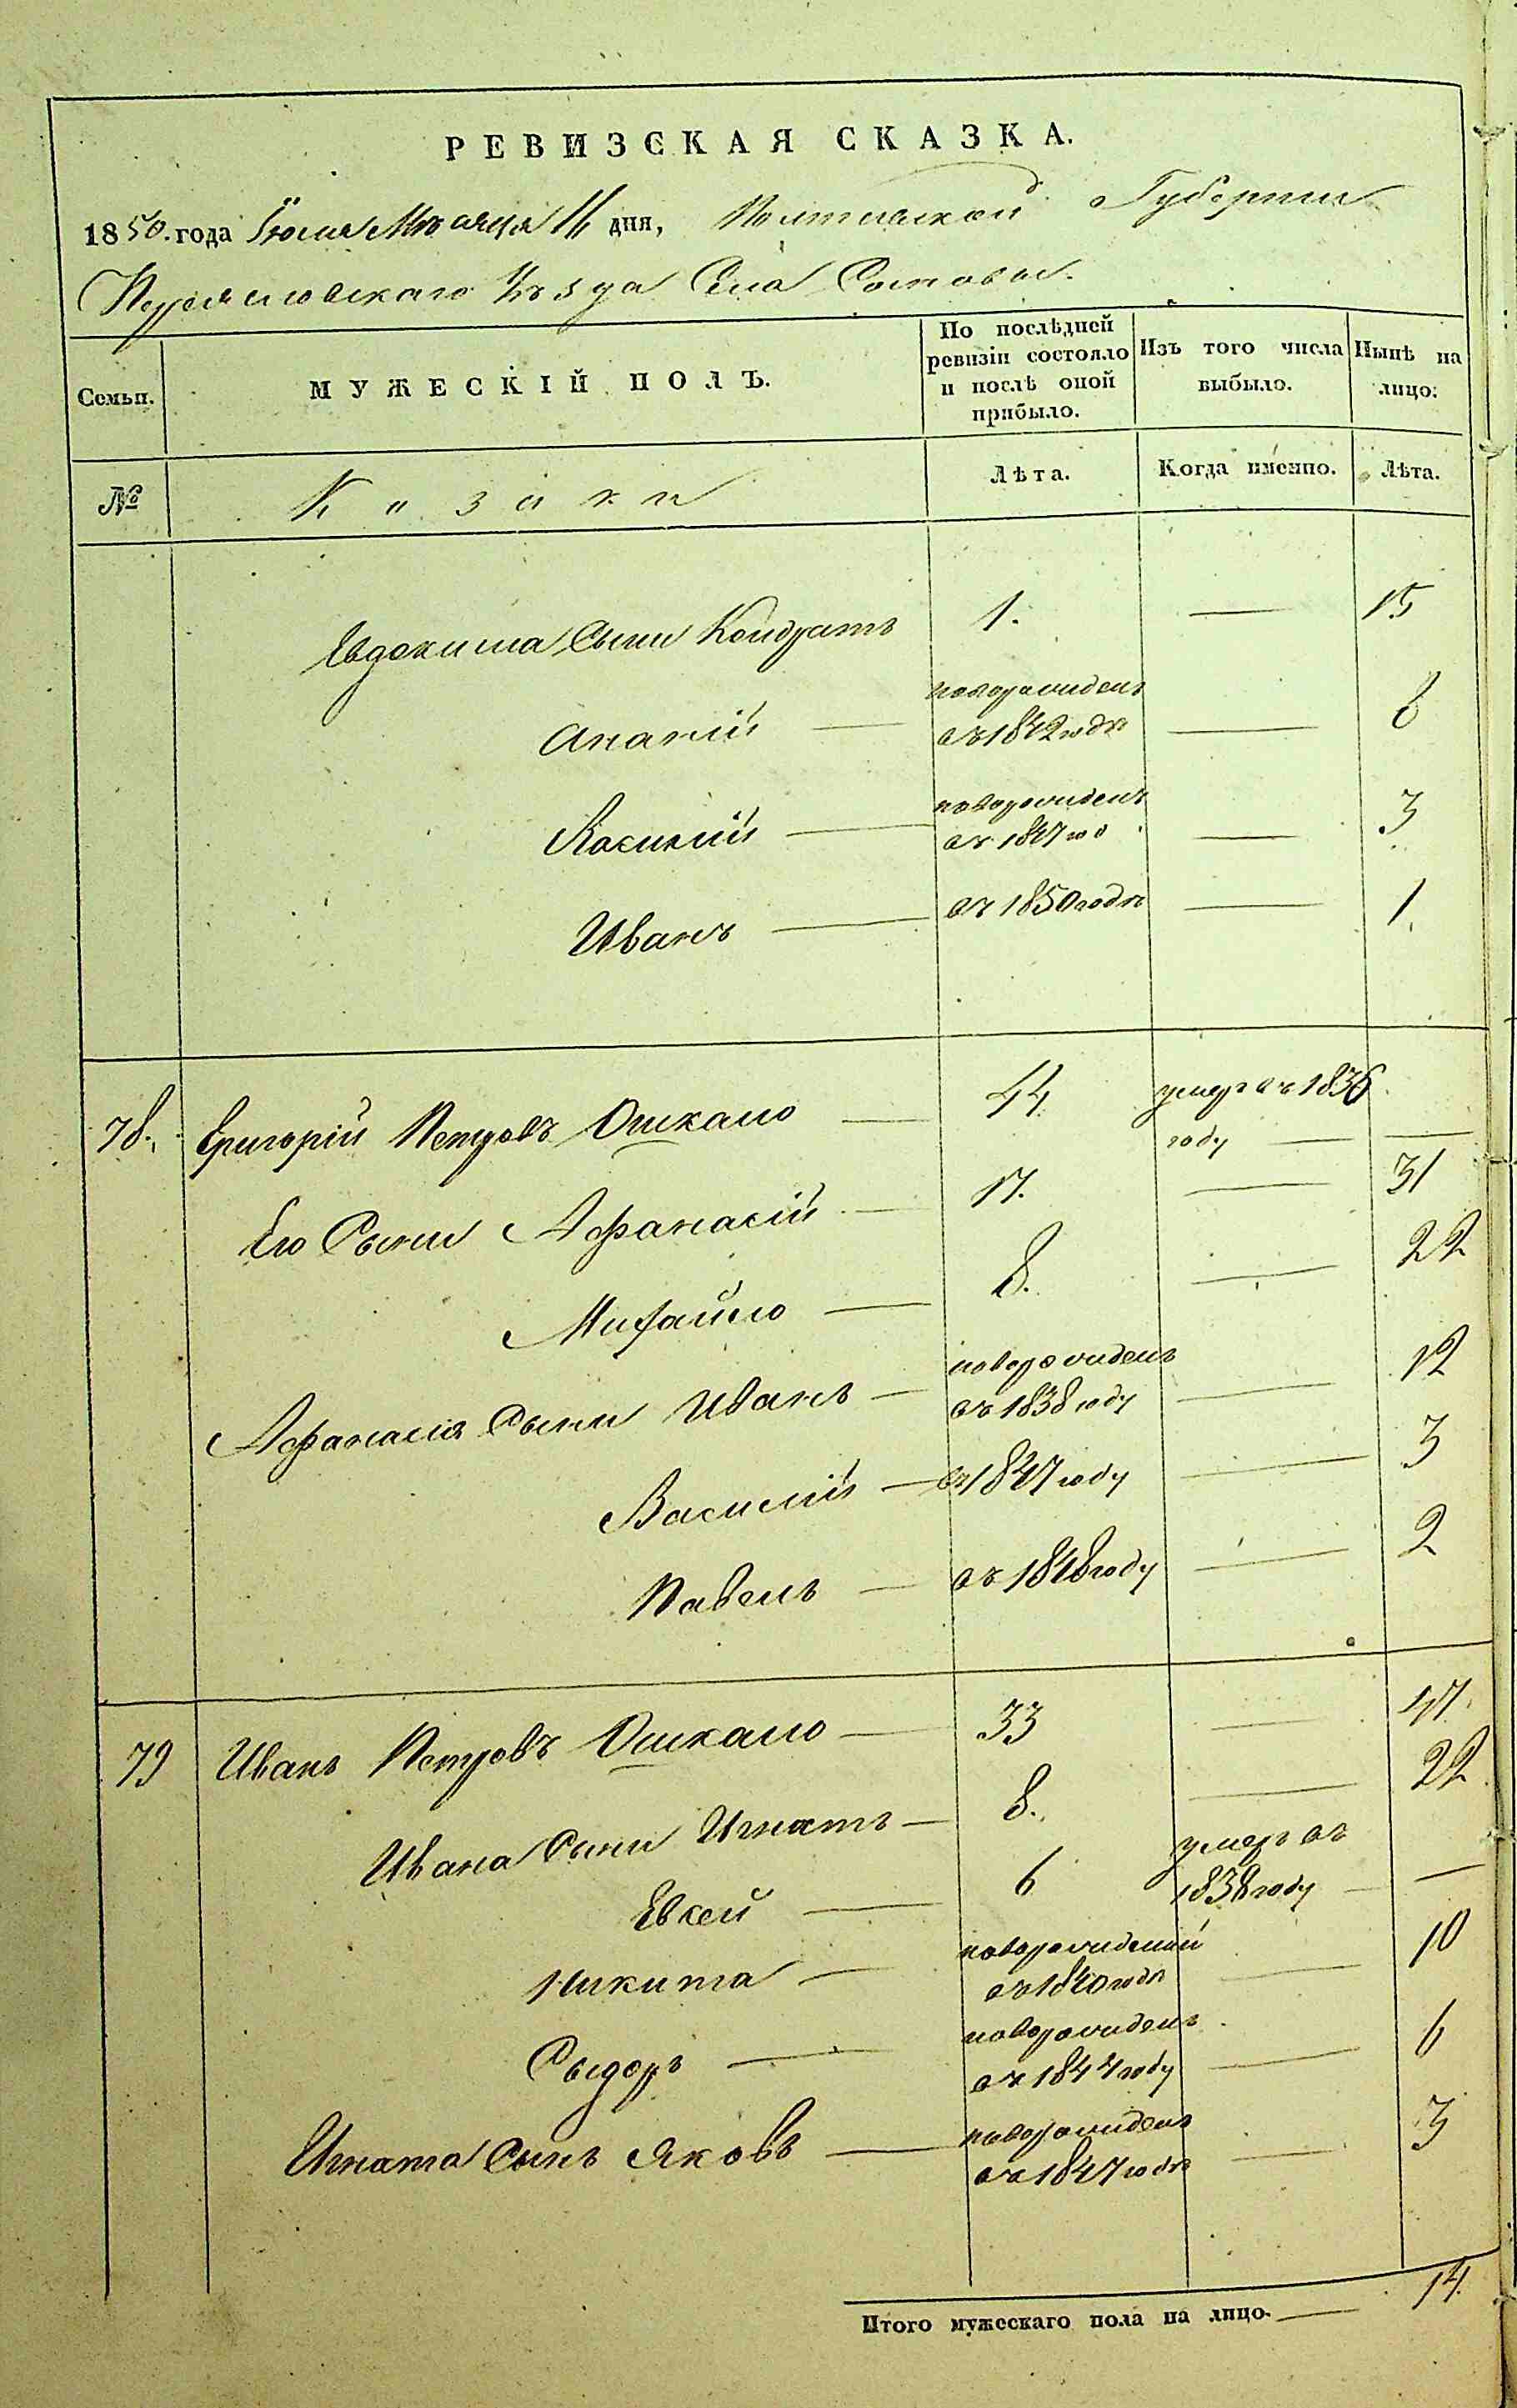 РЕВИЗСКАЯ СКАЗКА.
1850. года Іюля Мѣсяца 11 дня, Полтавской Губерніи
Переяславскаго Уѣзда Села Сомовки.
Семьи.
МУЖЕСКІЙ ПОЛЪ.
По послѣдней ревизіи состояло и послѣ оной прибыло.
Изъ того числа выбыло.
Нынѣ на лицо:
№
Козаки
Лѣта.
Когда именно.
Лѣта.
Евдокима Сыни Кондратъ 1. — 15
Ананій — новорожденъ въ 1842 годѣ — 8
Василій — новорожденъ въ 1847 год — 3
Иванъ — въ 1850 годѣ — 1.
78. Григорій Петровъ Ошкало — 44 умеръ въ 1836 году — —
Его Сыни Афанасій — 17. — 31
Михайло — 8. — 22
Афанасія Сыни Иванъ — новорожденъ въ 1838 году — 12
Василій — въ 1847 году — 3
Павелъ — въ 1848 году — 2
79 Иванъ Петровъ Ошкало — 33 — 47.
Ивана Сыни Игнатъ — 8. — 22
Евсей — 6 умеръ въ 1838 году — —
Никита — новорожденый въ 1840 годѣ — 10
Сыдоръ — новорожденъ въ 1844 году — 6
Игната Сынъ Яковъ — новорожденъ въ 1847 годѣ — 3
Итого мужескаго пола на лицо. — 14.